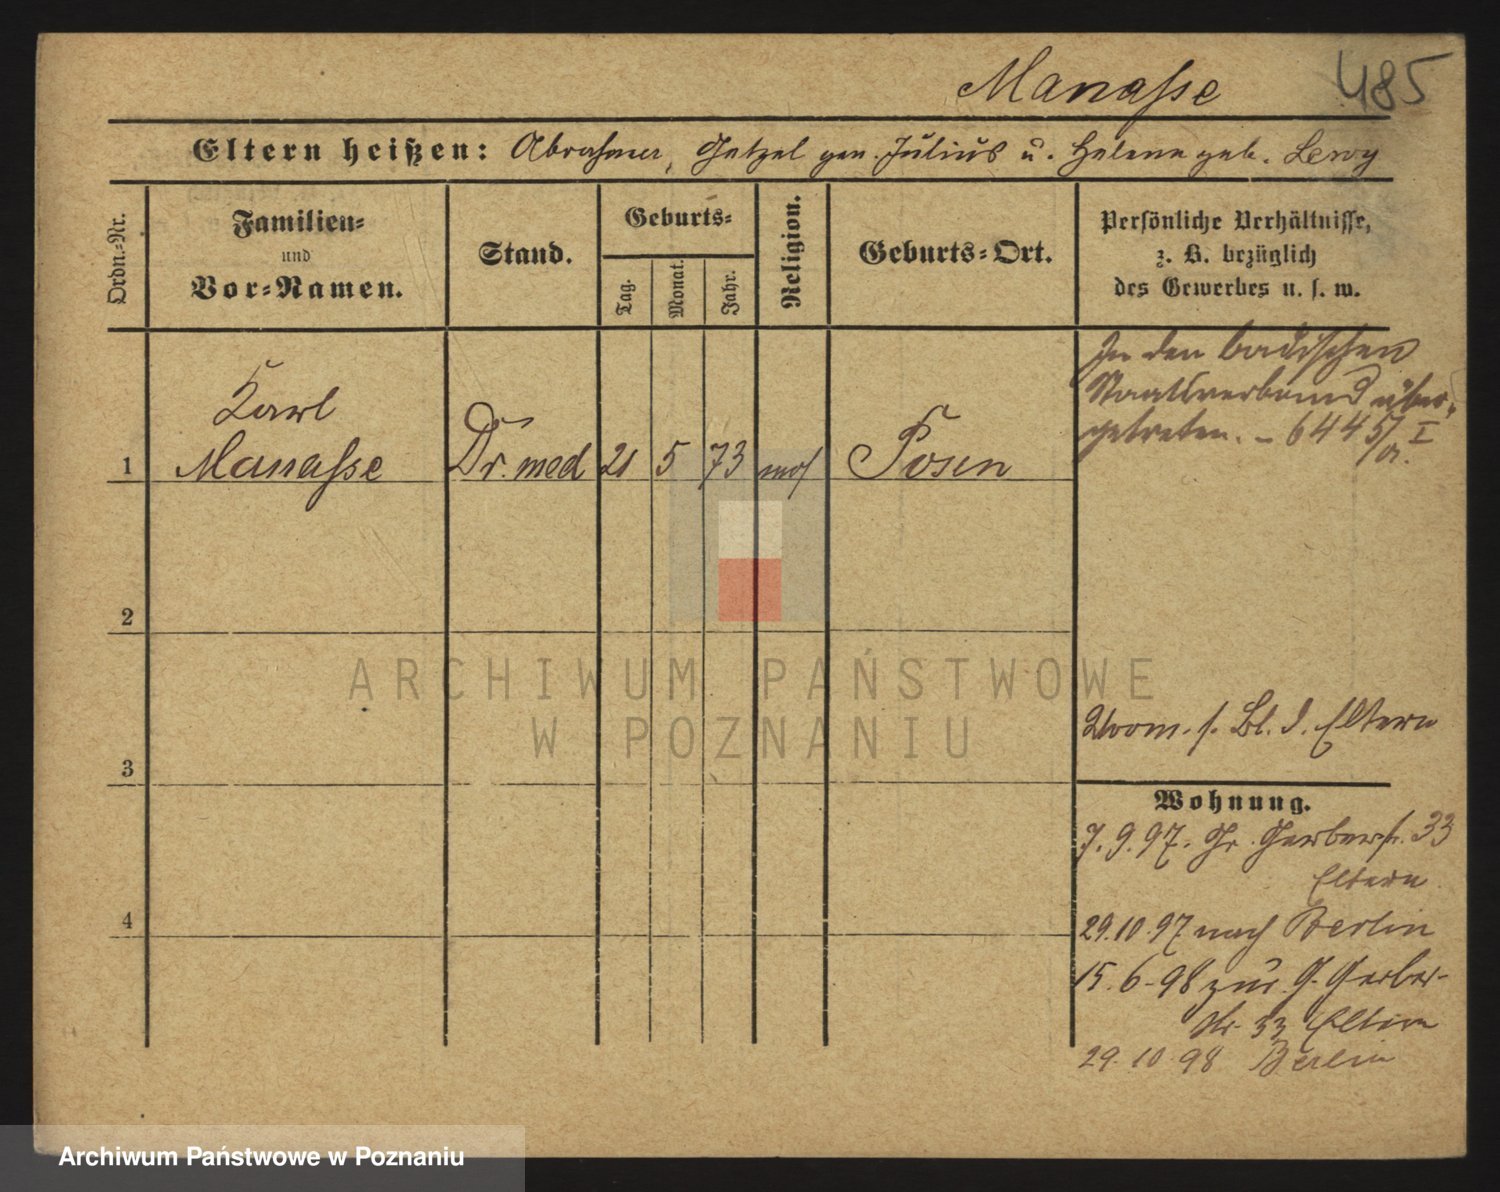 Manasse 485
Eltern heißen: Abraham, Hetzel gen. Julius u. Helene geb. Lewy
Ordn.=Nr.
Familien=
und
Vor=Namen.
Stand.
Geburts=
Tag.
Monat.
Jahr.
Religion.
Geburts=Ort.
Persönliche Verhältnisse,
z. B. bezüglich
des Gewerbes u. s. w.
1
Karl
Manasse
Dr. med
21
5
73
mos
Posen
In den badischen
Staatsverband über-
getreten. - 6445/ I
2
3
4
s. Bl. d. Eltern
Wohnung.
7.9.97. Gr. Gerberstr. 33
Eltern
29.10.97 nach Berlin
15.6.98 zur. G. Gerber-
str. 33 Eltern
29.10.98 Berlin
ARCHIWUM PAŃSTWOWE
W POZNANIU
Archiwum Państwowe w Poznaniu